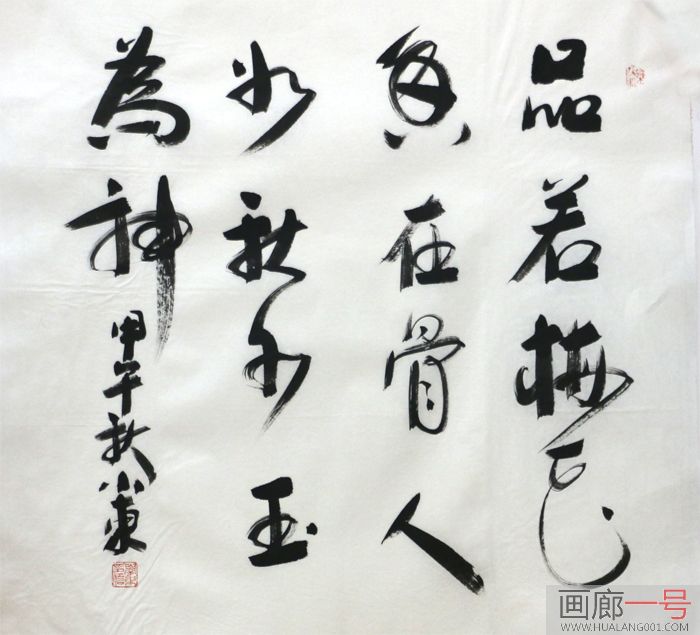 品若梅花
香在骨人
如秋水玉
為神
甲午秋小東
画廊一号
WWW.HUALANG001.COM